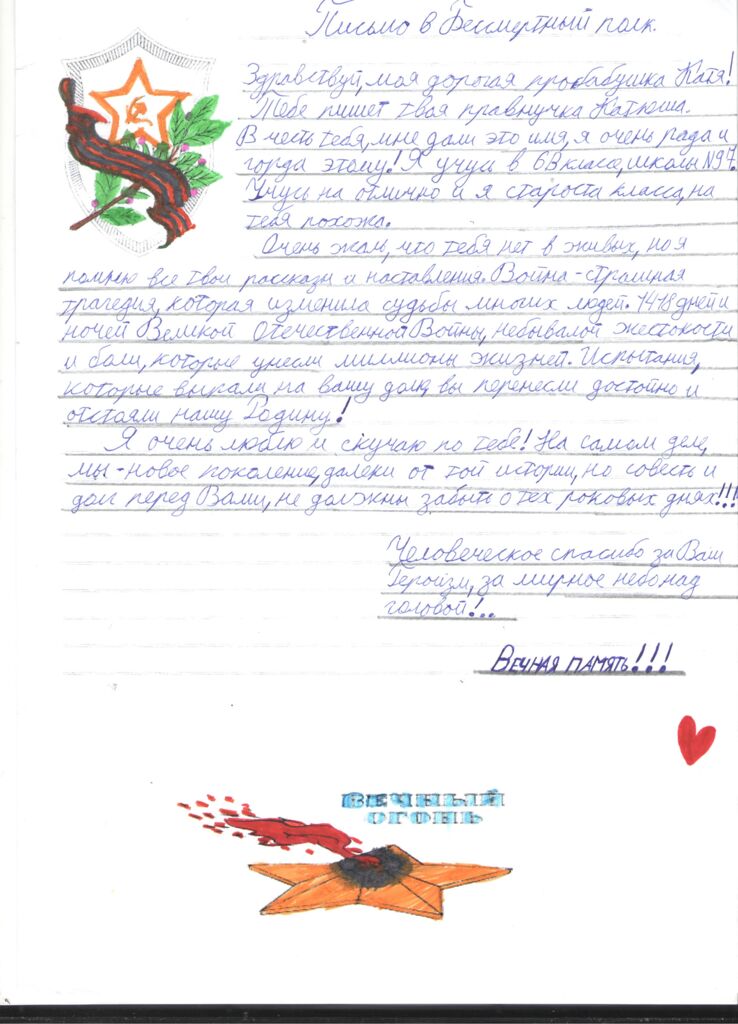 Письмо в Бессмертный полк.
Здравствуй, моя дорогая прабабушка Катя!
Тебе пишет твая правнучка Катюша.
В честь тебя, мне дали это имя, я очень рада и
горда этому! Я учусь в 6В классе, школы №97.
Учусь на отлично и я староста класса, на
тебя похожа.
Очень жаль, что тебя нет в живых, но я
помню все твои рассказы и наставления. Война-страшная
трагедия, которая изменила судьбы многих людей. 1418 дней и
ночей Великой Отечественной Войны, небывалой жестокости
и боли, которые унесли миллионы жизней. Испытания,
которые выпали на вашу долю, вы перенесли достойно и
отстояли нашу Родину!
Я очень люблю и скучаю по тебе! На самом деле,
мы-новое поколение, далеки от той истории, но совесть и
долг перед Вами, не должны забыть о тех роковых днях!!!
Человеческое спасибо за Ваш
Героизм, за мирное небо над
головой!..
Вечная память!!!
ВЕЧНЫЙ
ОГОНЬ